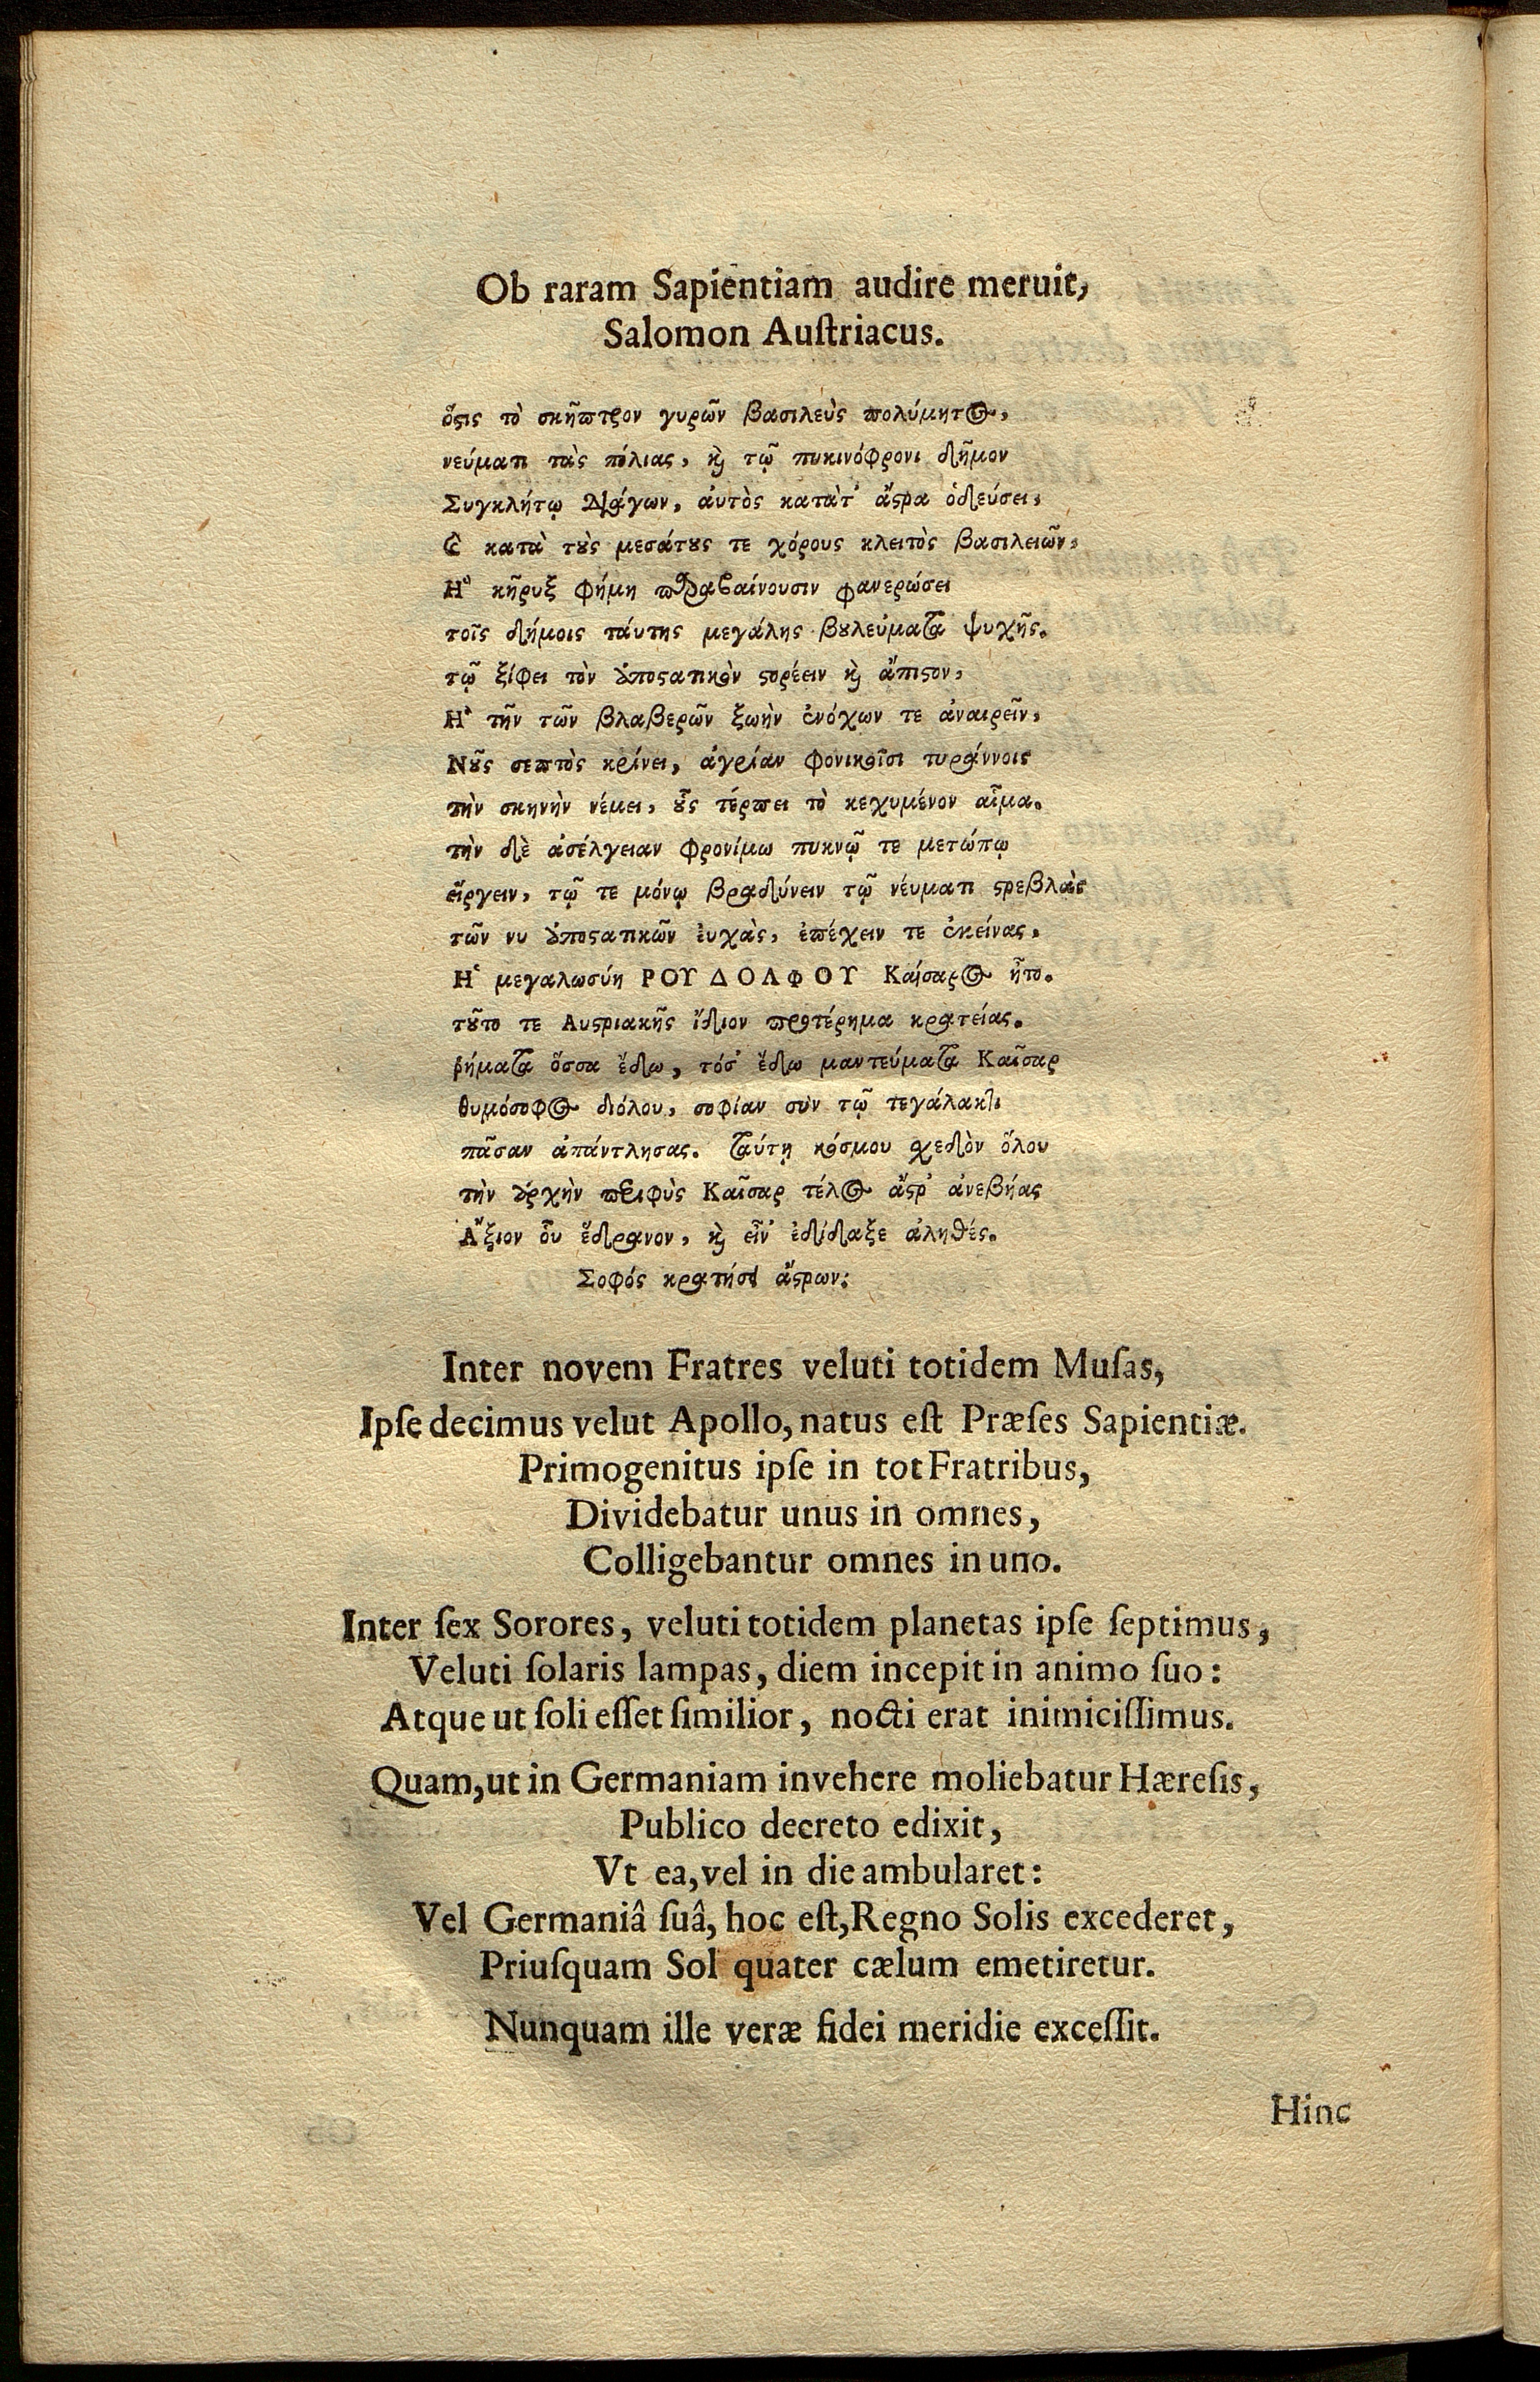 Ob raram Sapientiam audire meruit,
Salomon Auſtriacus.
ὅϛις τὸ σκῆπτρον γυρῶν βασιλεὺς πολύμητος,
νεύματι τὰς πόλιας, καὶ τῷ πυκινόφρονι δῆμον
Συγκλήτῳ διάγων, ἀυτὸς κατὰτ' ἄϛρα ὁδεύσει,
κατὰ τȣ̀ς μεσάτȣς τε χόρους κλειτὸς βασιλειῶν,
Ἠ κῆρυξ φήμη παραβαίνουσιν φανερώσει
τοῖς δήμοις τάυτης μεγάλης βȣλεύματα ψυχῆς.
τῷ ξίφει τὸν ὑποϛατικὸν ϛορέειν καὶ ἄπιϛον,
Ἢ τῆν τῶν βλαβερῶν ξωὴν ἐνόχων τε ἀναιρεῖν,
Νȣ͂ς σεπτὸς κρίνει, ἀγρίαν φονικοῖσι τυράννοις
τὴν σκηνὴν νέμει, ȣ̓͂ς τέρπει τὸ κεχυμένον αἷμα.
τὴν δὲ ἀσέλγειαν φρονίμω πυκνῷ τε μετώπῳ
εἴργειν, τῷ τε μόνῳ βραδύνειν τῷ νέυματι ϛρεβλὰς
τῶν νυ ὑποϛατικῶν ἐυχὰς, ἐπέχειν τε ἐκείνας.
Ἡ μεγαλωσύη ΡΟΥΔΟΛΦΟΥ Καίσαρος ἦτο.
τȣ͂το τε Αυϛριακῆς ἴδιον προτέρημα κρατείας.
ῥήματα ὅσσα ἔδω, τόσ' ἔδω μαντεύματα Καῖσαρ
θυμόσοφος διόλου, σοφίαν σὺν τῷ τεγάλακτι
πᾶσαν ἀπάντλησας. ταύτῃ κόσμου σχεδὸν ὅλου
τὴν ἀρχὴν περιφὺς Καῖσαρ τέλος ἄϛρ' ἀνεβήας
Ἄξιον ὃυ ἕδρανον, καὶ εἶν' ἐδίδαξε ἀληθές.
Σοφός κρατήσει ἄϛρων:
Inter novem Fratres veluti totidem Muſas,
Ipſe decimus velut Apollo, natus eſt Præſes Sapientiæ.
Primogenitus ipſe in tot Fratribus,
Dividebatur unus in omnes,
Colligebantur omnes in uno.
Inter ſex Sorores, veluti totidem planetas ipſe ſeptimus,
Veluti ſolaris lampas, diem incepit in animo ſuo:
Atque ut ſoli eſſet ſimilior, nocti erat inimiciſſimus.
Quam, ut in Germaniam invehere moliebatur Hæreſis,
Publico decreto edixit,
Vt ea, vel in die ambularet:
Vel Germaniâ ſuâ, hoc eſt, Regno Solis excederet,
Priuſquam Sol quater cælum emetiretur.
Nunquam ille veræ fidei meridie exceſſit.
Hinc